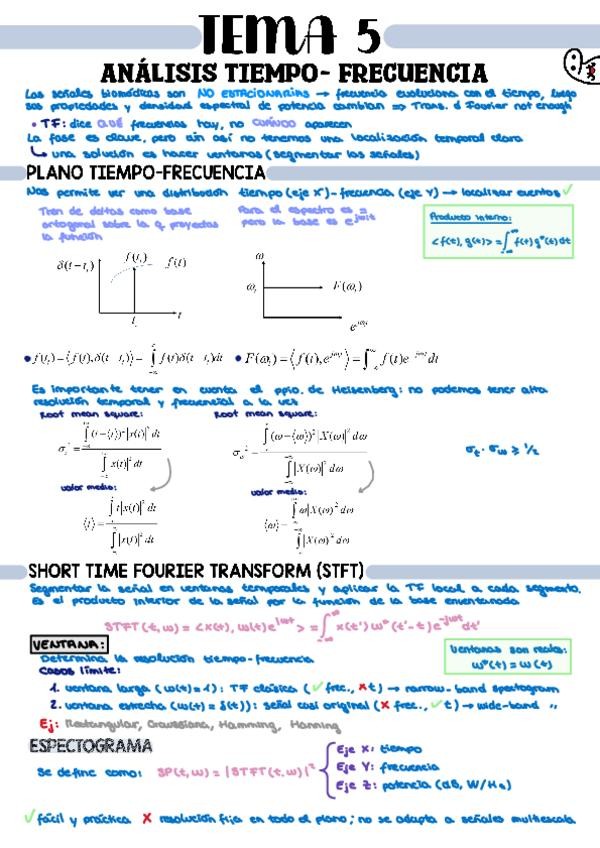 TEMA 5
ANÁLISIS TIEMPO- FRECUENCIA
Las señales biomédicas son NO ESTACIONARIAS → frecuencia evoluciona con el tiempo, luego
sus propiedades y densidad espectral de potencia cambian => Trans. d Fourier not enough
• TF: dice QUÉ frecuencias hay, no CUÁNDO aparecen
La fase es clave, pero aún así no tenemos una localización temporal clara
↳ una solución es hacer ventanas (segmentar las señales)
PLANO TIEMPO-FRECUENCIA
Nos permite ver una distribución tiempo (eje X) - frecuencia (eje Y) → localizar eventos ✓
Tren de deltas como base
ortogonal sobre la q proyectas
la función
Para el espectro es =
pero la base es e^jωit
Producto interno:
<f(t), g(t)> = ∫_-∞^∞ f(t) g*(t) dt
δ(t − t_i) f(t_i) f(t)
t_i t
ω
ω_i F(ω_i)
e^{jω_i t}
• f(t_i) = ⟨f(t), δ(t − t_i)⟩ = ∫_-∞^∞ f(t)δ(t − t_i)dt • F(ω_i) = ⟨f(t), e^{jω_i t}⟩ = ∫_-∞^∞ f(t)e^{−jω_i t} dt
Es importante tener en cuenta el ppio. de Heisenberg: no podemos tener alta
resolución temporal y frecuencial a la vez
Root mean square: Root mean square:
σ_t² = ∫(t − ⟨t⟩)² |x(t)|² dt / ∫|x(t)|² dt σ_ω² = ∫(ω − ⟨ω⟩)² |X(ω)|² dω / ∫|X(ω)|² dω σt · σω ≥ 1/2
valor medio: valor medio:
⟨t⟩ = ∫t|x(t)|² dt / ∫|x(t)|² dt ⟨ω⟩ = ∫ω|X(ω)|² dω / ∫|X(ω)|² dω
SHORT TIME FOURIER TRANSFORM (STFT)
Segmentar la señal en ventanas temporales y aplicar la TF local a cada segmento.
Es el producto interior de la señal por la función de la base enventanada
STFT(t,ω) = <x(t), ω(t)e^jωt> = ∫_-∞^∞ x(t') ω*(t'-t) e^-jωt' dt'
VENTANA:
Determina la resolución tiempo-frecuencia
Ventanas son reales:
ω*(t) = ω(t)
Casos límite:
1. ventana larga (ω(t)=1): TF clásica (✓ frec., ✗ t) → narrow-band spectogram
2. ventana estrecha (ω(t) = δ(t)): señal casi original (✗ frec., ✓ t) → wide-band "
Ej: Rectangular, Gaussiana, Hamming, Hanning
ESPECTOGRAMA
Se define como: SP(t,ω) = |STFT(t,ω)|²
Eje X: tiempo
Eje Y: frecuencia
Eje Z: potencia (dB, W/Hz)
✓ fácil y práctica ✗ resolución fija en todo el plano; no se adapta a señales multiescala